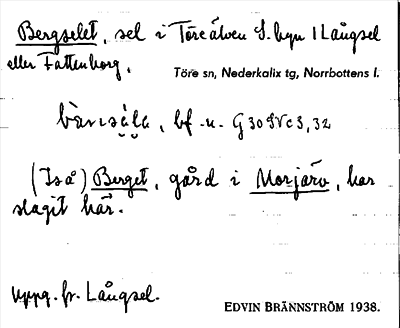 Bergselet, sel i Töreälven S. byn Långsel
eller Fattenborg.
Töre sn, Nederkalix tg, Norrbottens l.
bf. n. G 30
(Iså) Berget, gård i Morjärv, har
slagit här.
Uppg. fr. Långsel.
EDVIN BRÄNNSTRÖM 1938.